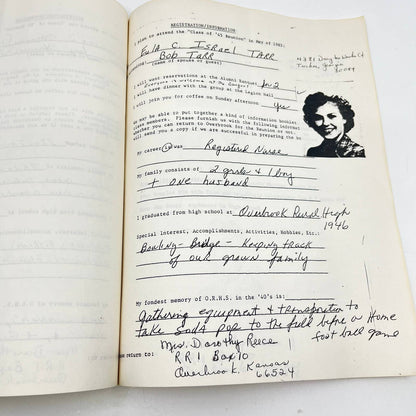 REGISTRATION/INFORMATION
I plan to attend the "Class of '41 Reunion" in May of 1985:
Eula C. Israel Tarr
Bob Tarr
(Name of spouse or guest)
Tucker, Georgia
30084
I will want reservations at the Alumni Banquet for 2
I will have dinner with the group at the Legion Hall
I will join you for coffee on Sunday afternoon Yes
We may be able to put together a kind of information booklet
class members. Please furnish us with the following informat
whether you can return to Overbrook for the Reunion or not.
will send you a copy if we are successful in preparing the bo
My career is was Registered Nurse
My family consists of 2 girls & 1 boy
+ one husband
I graduated from high school at Overbrook Rural High
1946
Special Interest, Accomplishments, Activities, Hobbies, Etc.:
Bowling - Bridge - Keeping track
of our grown family
My fondest memory of O.R.H.S. in the '40's is:
Gathering equipment & transportation to
take soda pop to the field before a Home
foot ball game
Mrs. Dorothy Reece
return to:
R R 1 Box 10
Overbrook, Kansas
66524